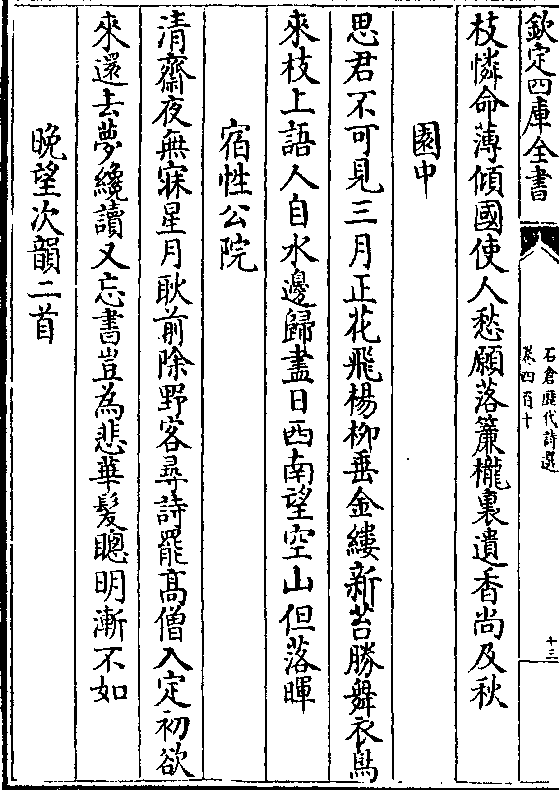 欽定四庫全書
石倉歷代詩選
卷四百十
十三
枝憐命薄傾國使人愁願落簾櫳裏遺香尚及秋
園中
思君不可見三月正花飛楊柳垂金縷新苔勝舞衣鳥
來枝上語人自水邊歸盡日西南望空山但落暉
宿性公院
清齋夜無寐星月耿前除野客尋詩罷高僧入定初欲
來還去夢纔讀又忘書豈為悲華髪聰明漸不如
晚望次韻二首